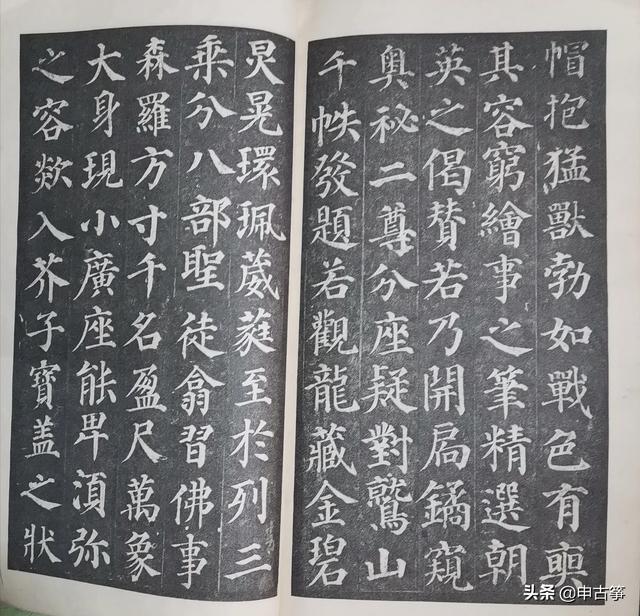 帽抱猛獸勃如戰色有奭
其容窮繪事之筆精選朝
英之偈賛若乃開扃鐍窺
奥祕二尊分座疑對鷲山
千帙發題若觀龍藏金碧
炅晃環珮葳蕤至於列三
乗分八部聖徒翕習佛事
森羅方寸千名盈尺萬象
大身現小廣座能卑湏弥
之容欻入芥子寶盖之狀
头条 @申古筝